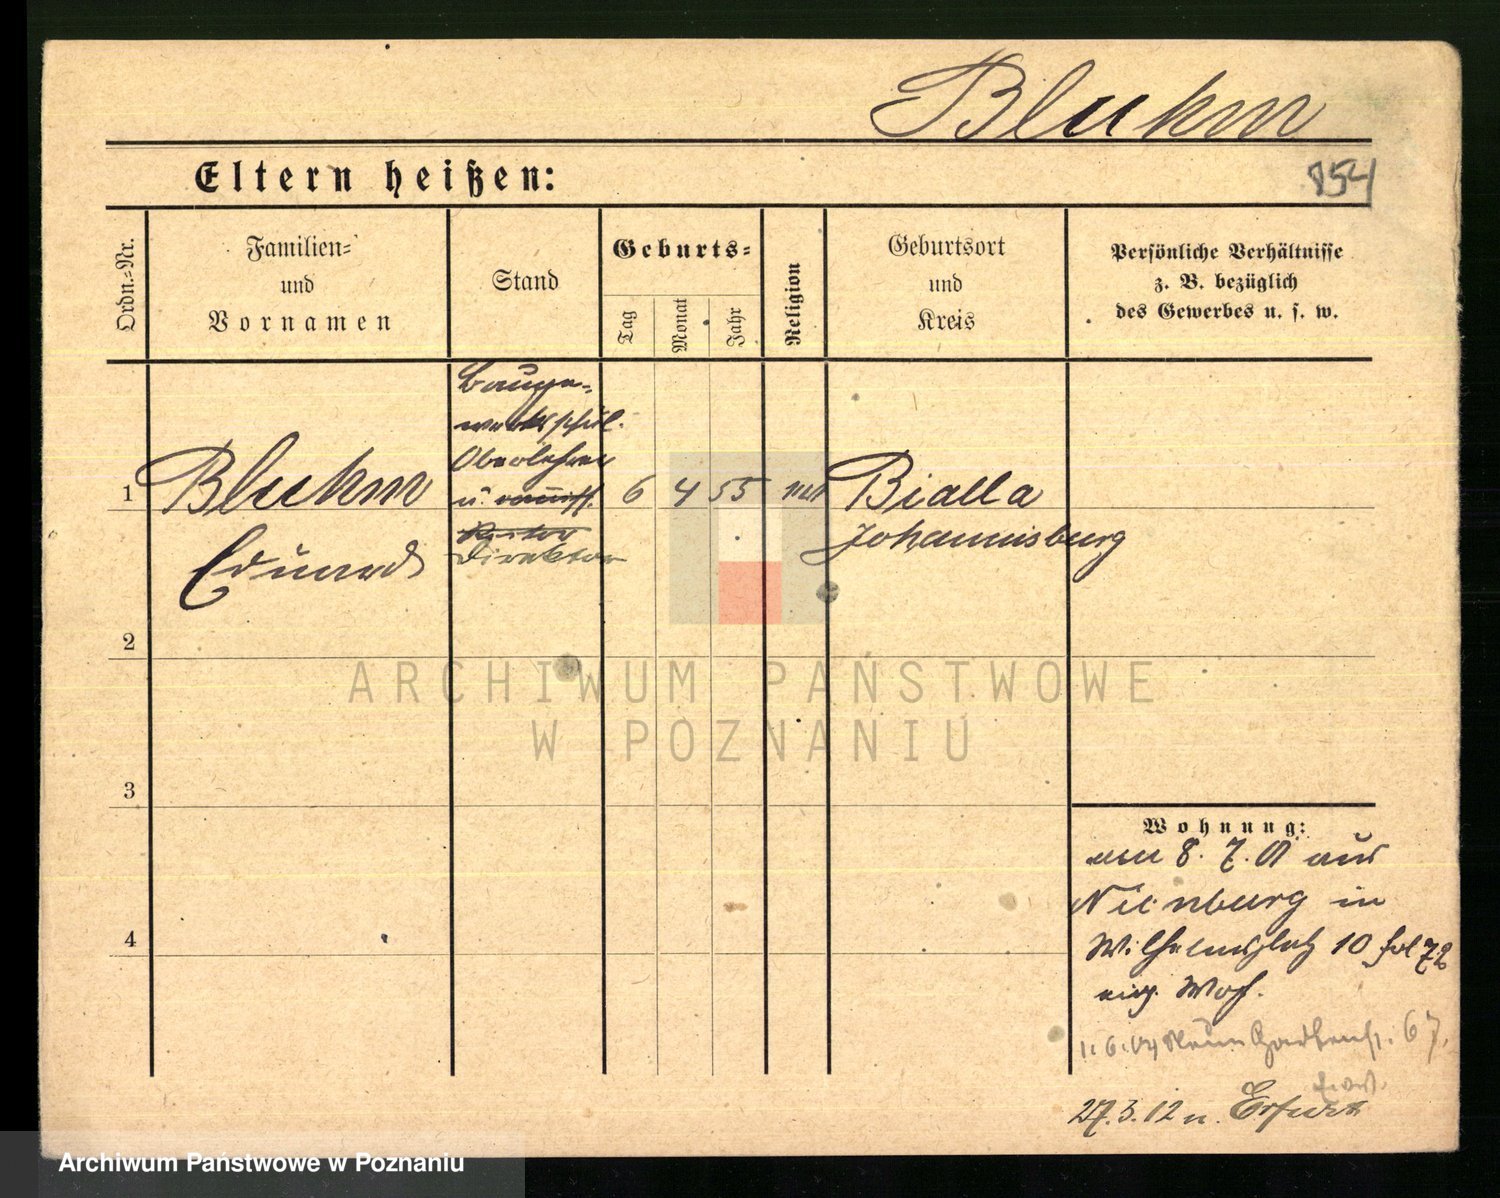 Bluhm
Eltern heißen:
854
Ordn.=Nr.
Familien=
und
Vornamen
Stand
Geburts=
Tag
Monat
Jahr
Religion
Geburtsort
und
Kreis
Persönliche Verhältnisse
z. B. bezüglich
des Gewerbes u. s. w.
Bauge-
werksschul.
Oberlehrer
1 Bluhm
u.
6 4 55
Bialla
Eduard
Direktor
Johannisburg
2
3
4
Wohnung:
am 8. 7. 01 aus
Nienburg in
Wilhelmsplatz 10 fol 72
eig. Woh.
67.
27. 3. 12 n. Erfurt
ARCHIWUM PAŃSTWOWE
W POZNANIU
Archiwum Państwowe w Poznaniu